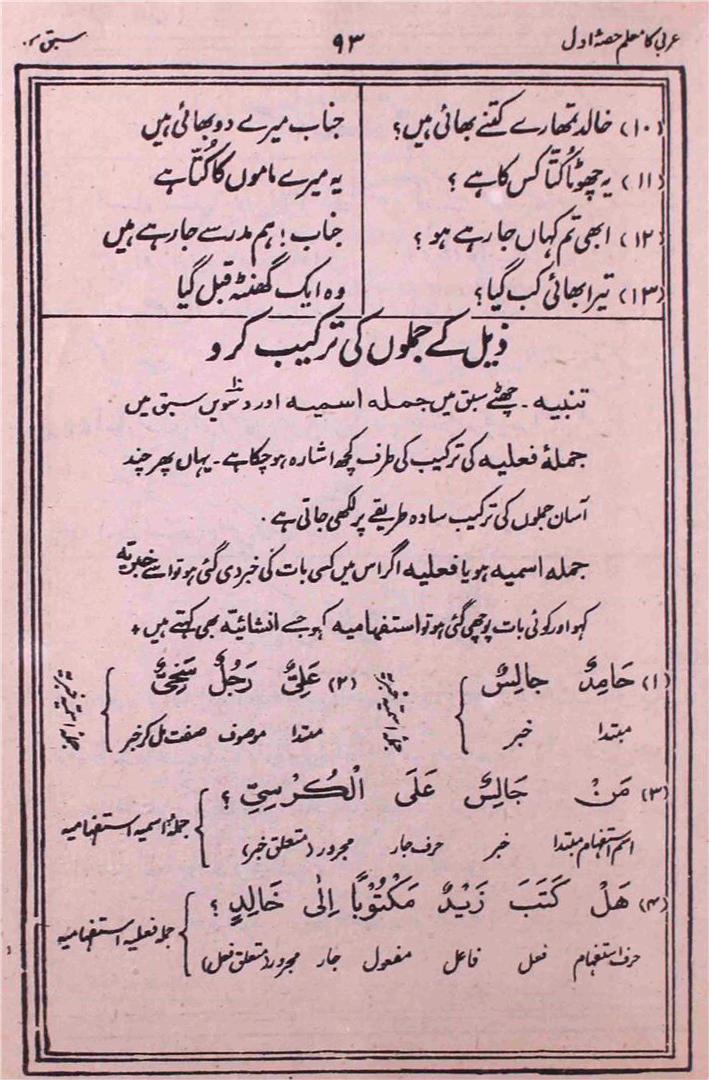 عربی کا معلم حصۂ اول ۹۳ سبق
(۱۰) خالد تمھارے کتنے بھائی ہیں؟ جناب میرے دو بھائی ہیں
(۱۱) یہ چھوٹا کُتّا کس کا ہے؟ یہ میرے ماموں کا کُتّا ہے
(۱۲) ابھی تم کہاں جا رہے ہو؟ جناب! ہم مدرسے جا رہے ہیں
(۱۳) تیرا بھائی کب گیا؟ وہ ایک گھنٹہ قبل گیا
ذیل کے جملوں کی ترکیب کرو
تنبیہ۔ چھٹے سبق میں جملہ اسمیہ اور دسویں سبق میں
جملۂ فعلیہ کی ترکیب کی طرف کچھ اشارہ ہو چکا ہے۔ یہاں پھر چند
آسان جملوں کی ترکیب سادہ طریقے پر لکھی جاتی ہے۔
جملہ اسمیہ ہو یا فعلیہ اگر اس میں کسی بات کی خبر دی گئی ہو تو اسے خبریہ
کہو اور کوئی بات پوچھی گئی ہو تو استفہامیہ کہو جسے انشائیہ بھی کہتے ہیں+
(۱) حَامِدٌ جَالِسٌ } جملہ اسمیہ خبریہ (۲) عَلِیٌّ رَجُلٌ سَخِیٌّ } جملہ اسمیہ خبریہ
مبتدا خبر مبتدا موصوف صفت مل کر خبر
(۳) مَنْ جَالِسٌ عَلَی الْکُرْسِیِّ؟ } جملۂ اسمیہ استفہامیہ
اسم استفہام مبتدا خبر حرف جار مجرور (متعلق خبر)
(۴) هَلْ کَتَبَ زَیْدٌ مَکْتُوْبًا اِلٰی خَالِدٍ؟ } جملہ فعلیہ استفہامیہ
حرف استفہام فعل فاعل مفعول جار مجرور (متعلق فعل)